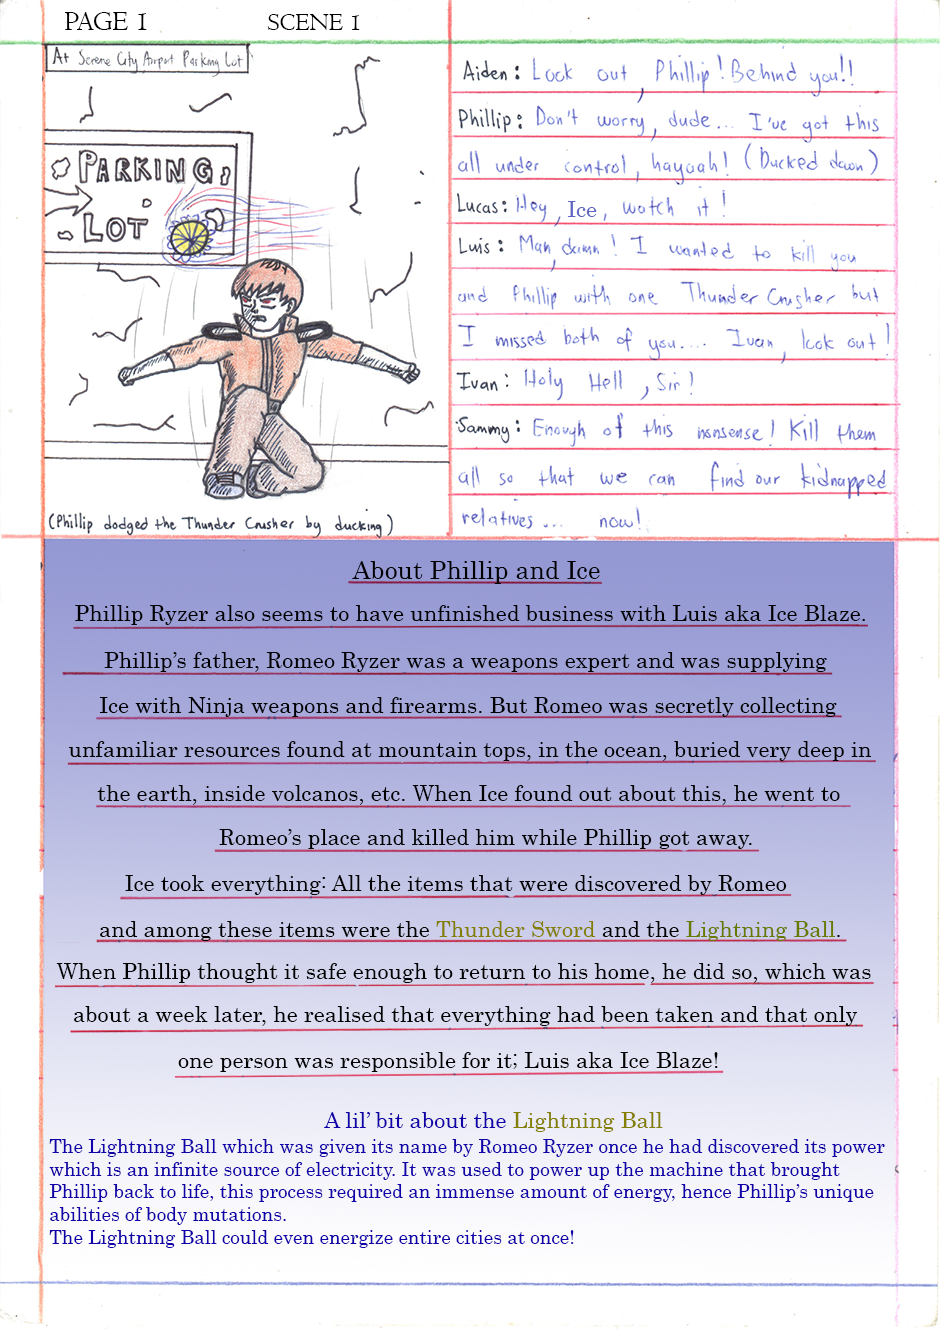 PAGE 1 SCENE 1
At Serene City Airport Parking Lot
PARKING
LOT
(Phillip dodged the Thunder Crusher by ducking)
Aiden: Look out, Phillip! Behind you!!
Phillip: Don't worry, dude... I've got this
all under control, hayaah! (Ducked down)
Lucas: Hey, Ice, watch it!
Luis: Man, damn! I wanted to kill you
and Phillip with one Thunder Crusher but
I missed both of you.... Ivan, look out!
Ivan: Holy Hell, Sir!
Sammy: Enough of this nonsense! Kill them
all so that we can find our kidnapped
relatives... now!
About Phillip and Ice
Phillip Ryzer also seems to have unfinished business with Luis aka Ice Blaze.
Phillip's father, Romeo Ryzer was a weapons expert and was supplying
Ice with Ninja weapons and firearms. But Romeo was secretly collecting
unfamiliar resources found at mountain tops, in the ocean, buried very deep in
the earth, inside volcanos, etc. When Ice found out about this, he went to
Romeo's place and killed him while Phillip got away.
Ice took everything: All the items that were discovered by Romeo
and among these items were the Thunder Sword and the Lightning Ball.
When Phillip thought it safe enough to return to his home, he did so, which was
about a week later, he realised that everything had been taken and that only
one person was responsible for it; Luis aka Ice Blaze!
A lil' bit about the Lightning Ball
The Lightning Ball which was given its name by Romeo Ryzer once he had discovered its power
which is an infinite source of electricity. It was used to power up the machine that brought
Phillip back to life, this process required an immense amount of energy, hence Phillip's unique
abilities of body mutations.
The Lightning Ball could even energize entire cities at once!